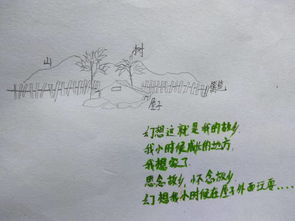 山
树
屋子
幻想这就是我的故乡,
我小时候成长的地方,
我想家了
思念故乡,怀念故乡
幻想我小时候在屋子外面玩耍....